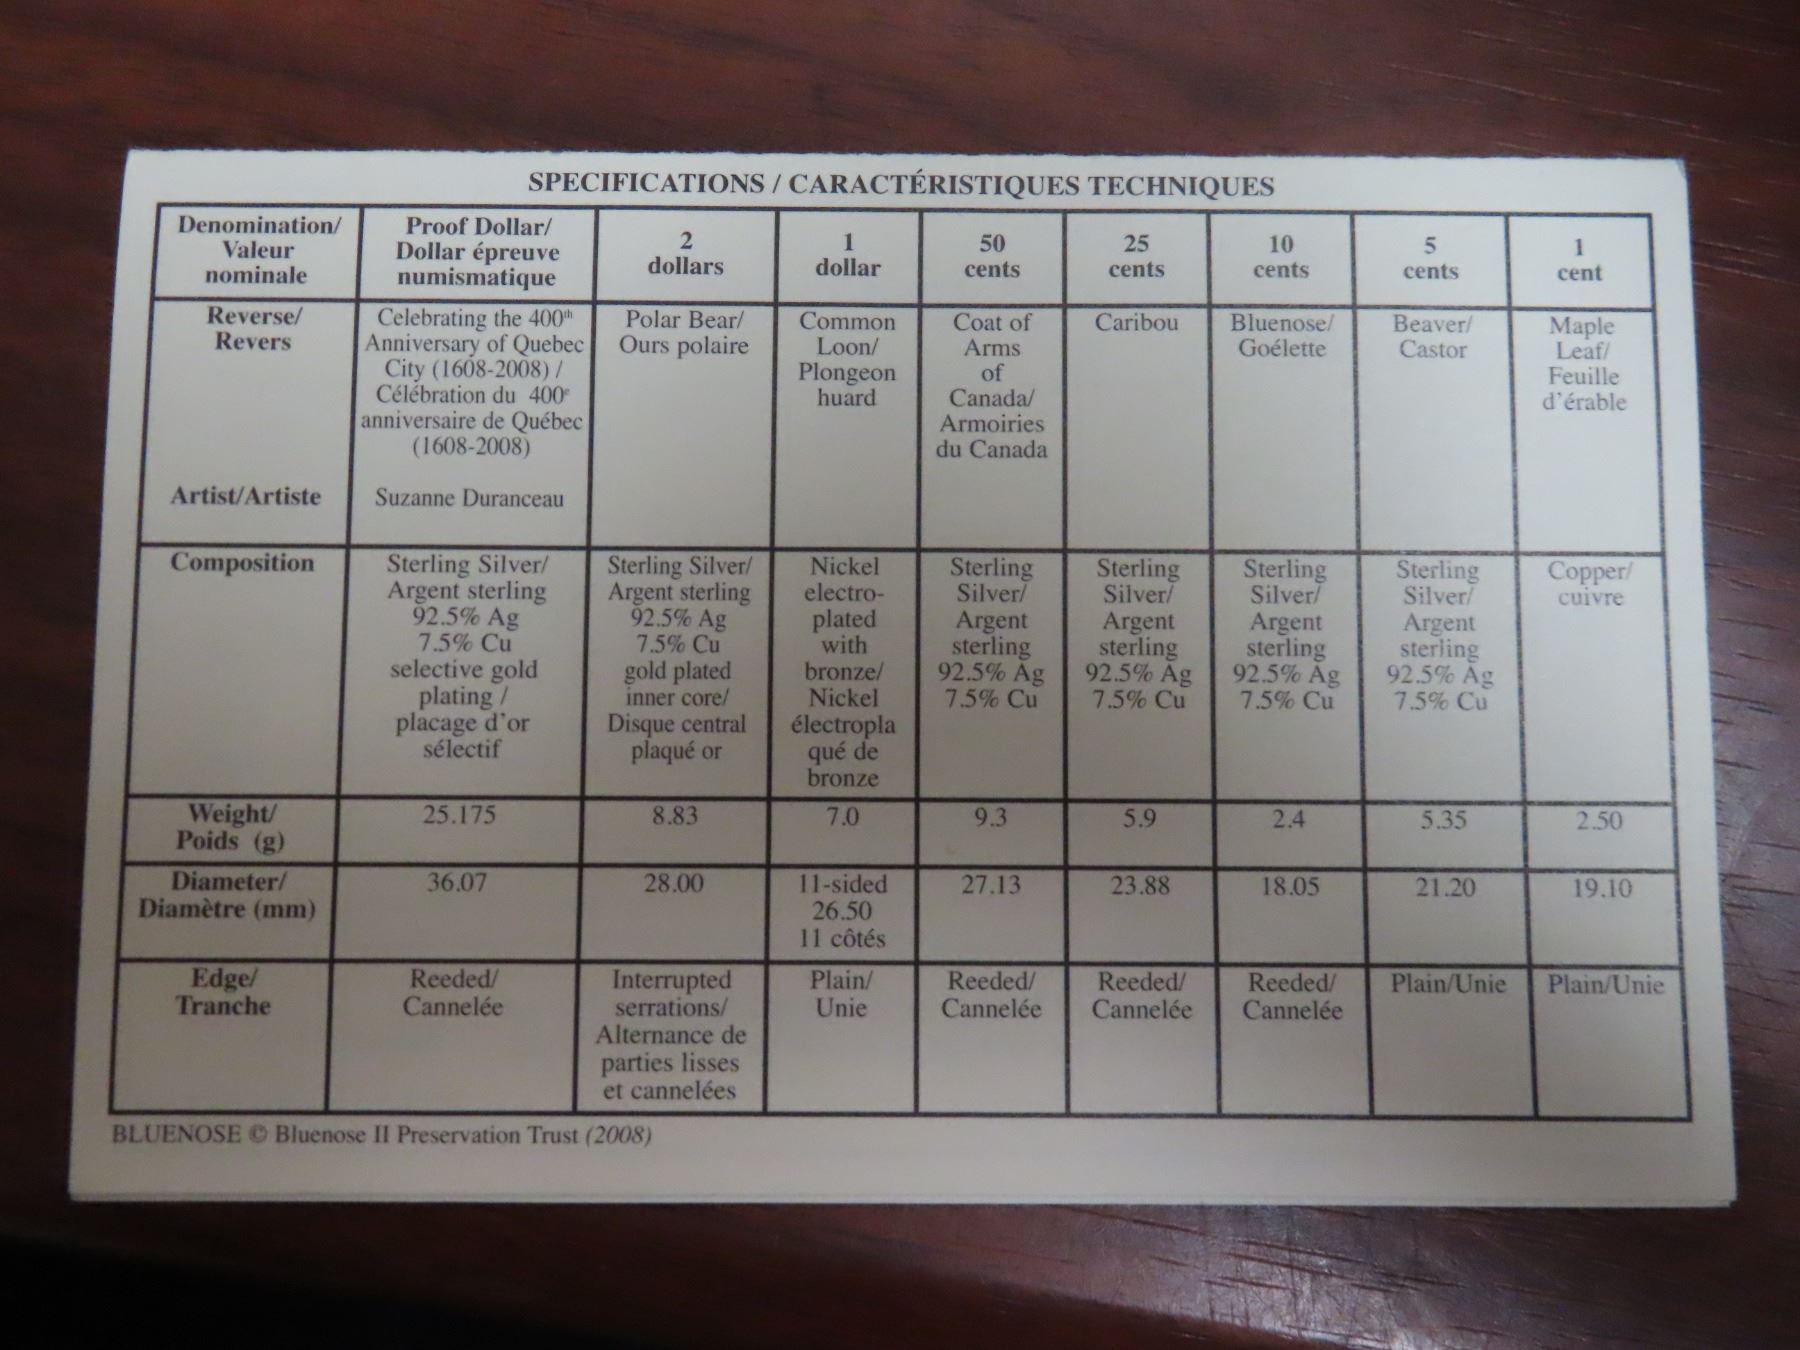 SPECIFICATIONS / CARACTÉRISTIQUES TECHNIQUES
Denomination/
Valeur
nominale
Proof Dollar/
Dollar épreuve
numismatique
2
dollars
1
dollar
50
cents
25
cents
10
cents
5
cents
1
cent
Reverse/
Revers
Celebrating the 400th
Anniversary of Quebec
City (1608-2008) /
Célébration du 400e
anniversaire de Québec
(1608-2008)
Polar Bear/
Ours polaire
Common
Loon/
Plongeon
huard
Coat of
Arms
of
Canada/
Armoiries
du Canada
Caribou
Bluenose/
Goélette
Beaver/
Castor
Maple
Leaf/
Feuille
d'érable
Artist/Artiste
Suzanne Duranceau
Composition
Sterling Silver/
Argent sterling
92.5% Ag
7.5% Cu
selective gold
plating /
placage d'or
sélectif
Sterling Silver/
Argent sterling
92.5% Ag
7.5% Cu
gold plated
inner core/
Disque central
plaqué or
Nickel
electro-
plated
with
bronze/
Nickel
électropla
qué de
bronze
Sterling
Silver/
Argent
sterling
92.5% Ag
7.5% Cu
Sterling
Silver/
Argent
sterling
92.5% Ag
7.5% Cu
Sterling
Silver/
Argent
sterling
92.5% Ag
7.5% Cu
Sterling
Silver/
Argent
sterling
92.5% Ag
7.5% Cu
Copper/
cuivre
Weight/
Poids (g)
25.175
8.83
7.0
9.3
5.9
2.4
5.35
2.50
Diameter/
Diamètre (mm)
36.07
28.00
11-sided
26.50
11 côtés
27.13
23.88
18.05
21.20
19.10
Edge/
Tranche
Reeded/
Cannelée
Interrupted
serrations/
Alternance de
parties lisses
et cannelées
Plain/
Unie
Reeded/
Cannelée
Reeded/
Cannelée
Reeded/
Cannelée
Plain/Unie
Plain/Unie
BLUENOSE © Bluenose II Preservation Trust (2008)